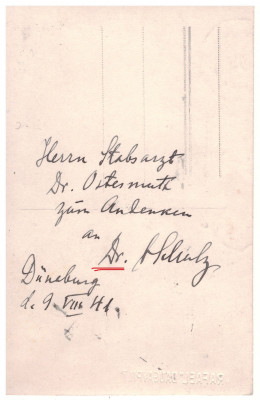 Herrn Stabsarzt
Dr. Ostermuth
zum Andenken
an
Dr. Schulz
Dünaburg
d. 9. VIII 41.